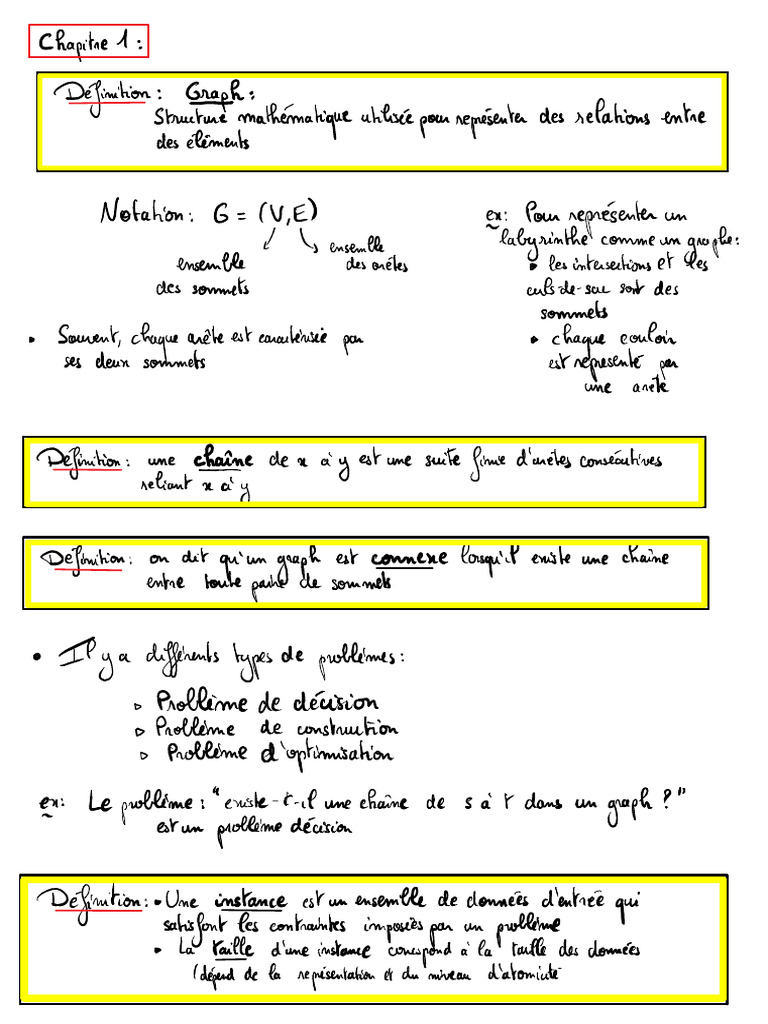 Chapitre 1 :
Définition : Graph :
Structure mathématique utilisée pour représenter des relations entre
des éléments
Notation : G = (V,E)
ensemble
des sommets
ensemble
des arêtes
ex : Pour représenter un
labyrinthe comme un graphe :
• les intersections et les
culs-de-sac sont des
sommets
• chaque couloir
est représenté par
une arête
• Souvent, chaque arête est caractérisée par
ses deux sommets
Définition : une chaîne de x à y est une suite finie d'arêtes consécutives
reliant x à y
Définition : on dit qu'un graph est connexe lorsqu'il existe une chaîne
entre toute paire de sommets
• Il y a différents types de problèmes :
▷ Problème de décision
▷ Problème de construction
▷ Problème d'optimisation
ex : Le problème : "existe-t-il une chaîne de s à t dans un graph ?"
est un problème décision
Définition : • Une instance est un ensemble de données d'entrée qui
satisfont les contraintes imposées par un problème
• La taille d'une instance correspond à la taille des données
(dépend de la représentation et du niveau d'atomicité